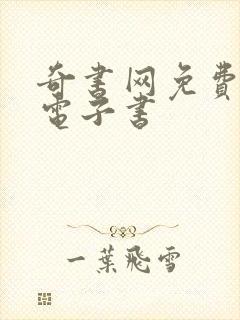 奇書网免費
電子書
一葉飛雪